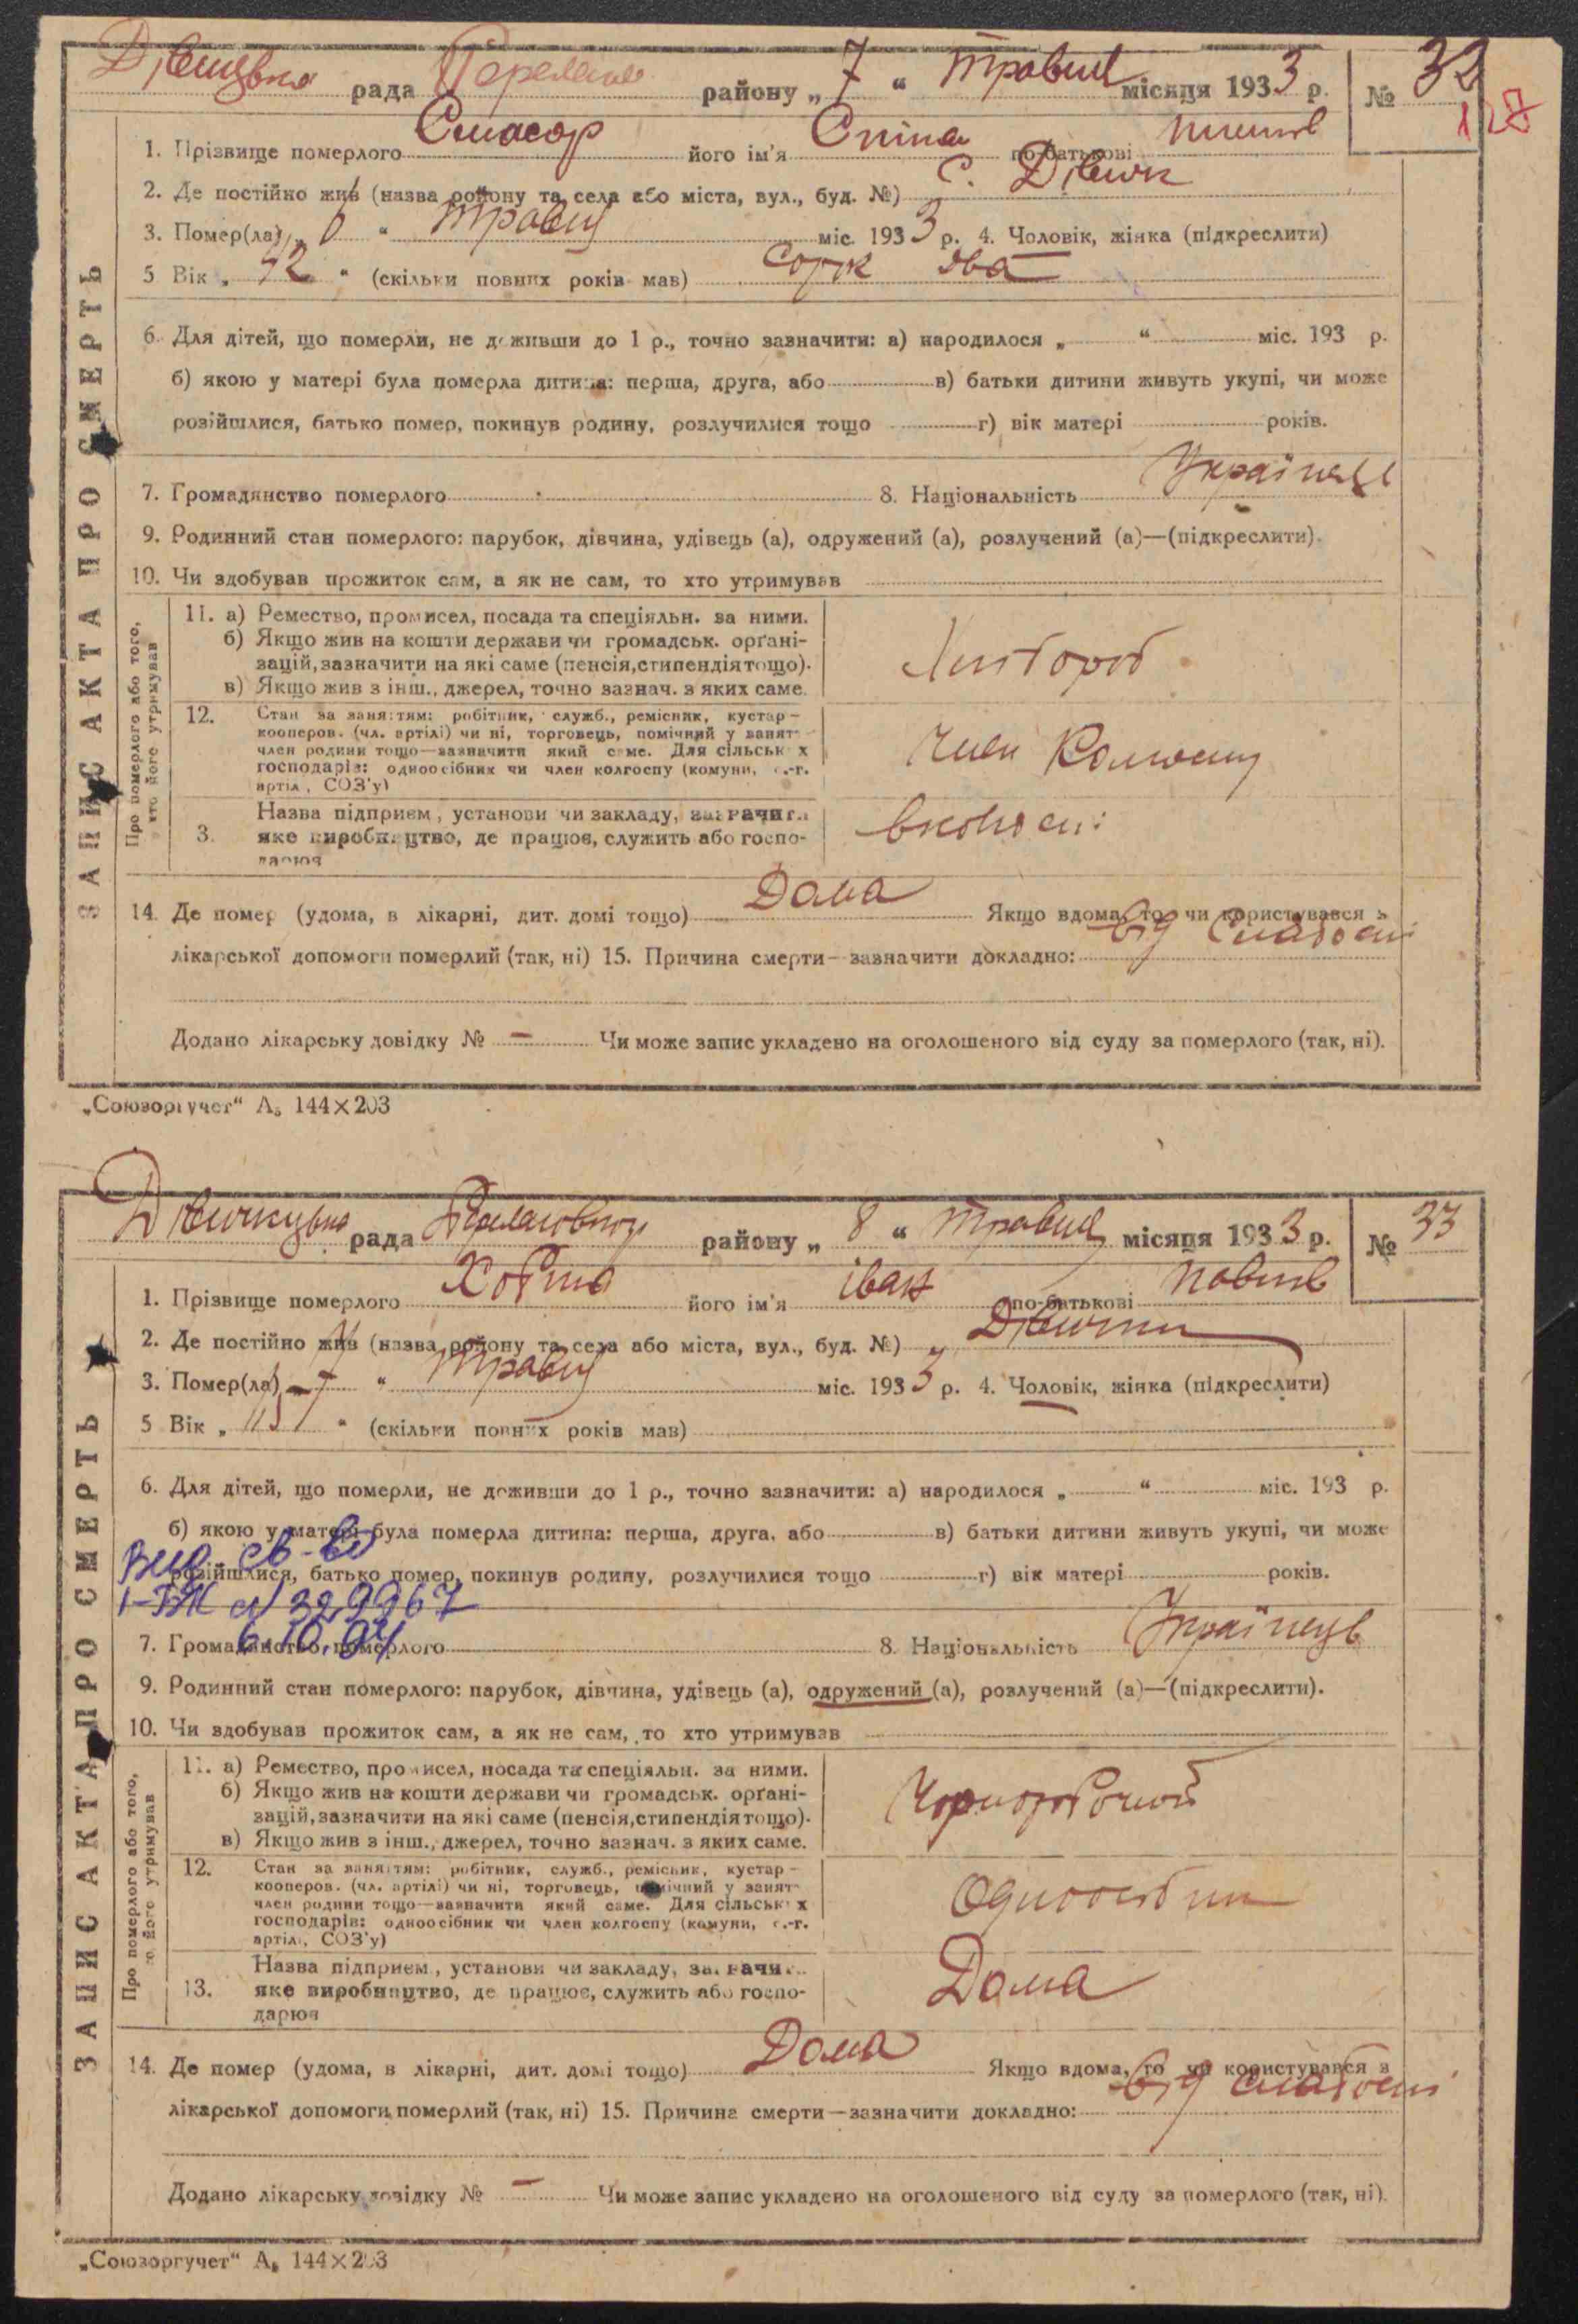 рада района „ 7 “ Травня місяця 1933 р. № 32
127
1. Прізвище померлого його ім'я по-батькові
2. Де постійно жив (назва району та села або міста, вул., буд. №) с.
3. Помер(ла) „ 6 “ Травня міс. 1933 р. 4. Чоловік, жінка (підкреслити)
5 Вік „ 42 “ (скільки повних років мав) Сорок два
6. Для дітей, що померли, не доживши до 1 р., точно зазначити: а) народилося „ “ міс. 193 р.
б) якою у матері була померла дитина: перша, друга, або в) батьки дитини живуть укупі, чи може
розійшлися, батько помер, покинув родину, розлучилися тощо г) вік матері років.
7. Громадянство померлого 8. Національність Українець
9. Родинний стан померлого: парубок, дівчина, удівець (а), одружений (а), розлучений (а)—(підкреслити).
10. Чи здобував прожиток сам, а як не сам, то хто утримував
ЗАПИС АКТА ПРО СМЕРТЬ
Про померлого або того, хто його утримував
11. а) Ремество, промисел, посада та спеціяльн. за ними.
б) Якщо жив на кошти держави чи громадськ. орґані-
зацій, зазначити на які саме (пенсія, стипендія тощо).
в) Якщо жив з інш., джерел, точно зазнач. з яких саме.
Хлібороб
12. Стан за заняттям: робітник, служб., ремісник, кустар-
кооперов. (чл. артілі) чи ні, торговець, помічний у занят-
член родини тощо—зазначити який саме. Для сільськ х
господарів: одноосібник чи член колгоспу (комуни, с.-г.
артіл, СОЗ'у)
Член Колгоспу
3. Назва підприєм, установи чи закладу, зазначити
яке виробництво, де працює, служить або госпо-
дарює
14. Де помер (удома, в лікарні, дит. домі тощо) Дома Якщо вдома, то чи користувався з
лікарської допомоги померлий (так, ні) 15. Причина смерти—зазначити докладно: від слабости
Додано лікарську довідку № — Чи може запис укладено на оголошеного від суду за померлого (так, ні).
„Союзоргучет“ А₅ 144×203
рада района „ 8 “ Травня місяця 1933 р. № 33
1. Прізвище померлого його ім'я Іван по-батькові
2. Де постійно жив (назва району та села або міста, вул., буд. №)
3. Помер(ла) „ 7 “ Травня міс. 1933 р. 4. Чоловік, жінка (підкреслити)
5 Вік „ 57 “ (скільки повних років мав)
6. Для дітей, що померли, не доживши до 1 р., точно зазначити: а) народилося „ “ міс. 193 р.
б) якою у матері була померла дитина: перша, друга, або в) батьки дитини живуть укупі, чи може
розійшлися, батько помер, покинув родину, розлучилися тощо г) вік матері років.
Выд. св-во
№ 329967
7. Громадянство померлого 8. Національність Українець
9. Родинний стан померлого: парубок, дівчина, удівець (а), одружений (а), розлучений (а)—(підкреслити).
10. Чи здобував прожиток сам, а як не сам, то хто утримував
ЗАПИС АКТА ПРО СМЕРТЬ
Про померлого або того, хто його утримував
11. а) Ремество, промисел, посада та спеціяльн. за ними.
б) Якщо жив на кошти держави чи громадськ. орґані-
зацій, зазначити на які саме (пенсія, стипендія тощо).
в) Якщо жив з інш., джерел, точно зазнач. з яких саме.
12. Стан за заняттям: робітник, служб., ремісник, кустар-
кооперов. (чл. артілі) чи ні, торговець, помічний у занят-
член родини тощо—зазначити який саме. Для сільськ х
господарів: одноосібник чи член колгоспу (комуни, с.-г.
артіл., СОЗ'у)
13. Назва підприєм, установи чи закладу, зазначити
яке виробництво, де працює, служить або госпо-
дарює
Дома
14. Де помер (удома, в лікарні, дит. домі тощо) Дома Якщо вдома, то чи користувався з
лікарської допомоги померлий (так, ні) 15. Причина смерти—зазначити докладно: від слабости
Додано лікарську довідку № — Чи може запис укладено на оголошеного від суду за померлого (так, ні).
„Союзоргучет“ А₅ 144×203